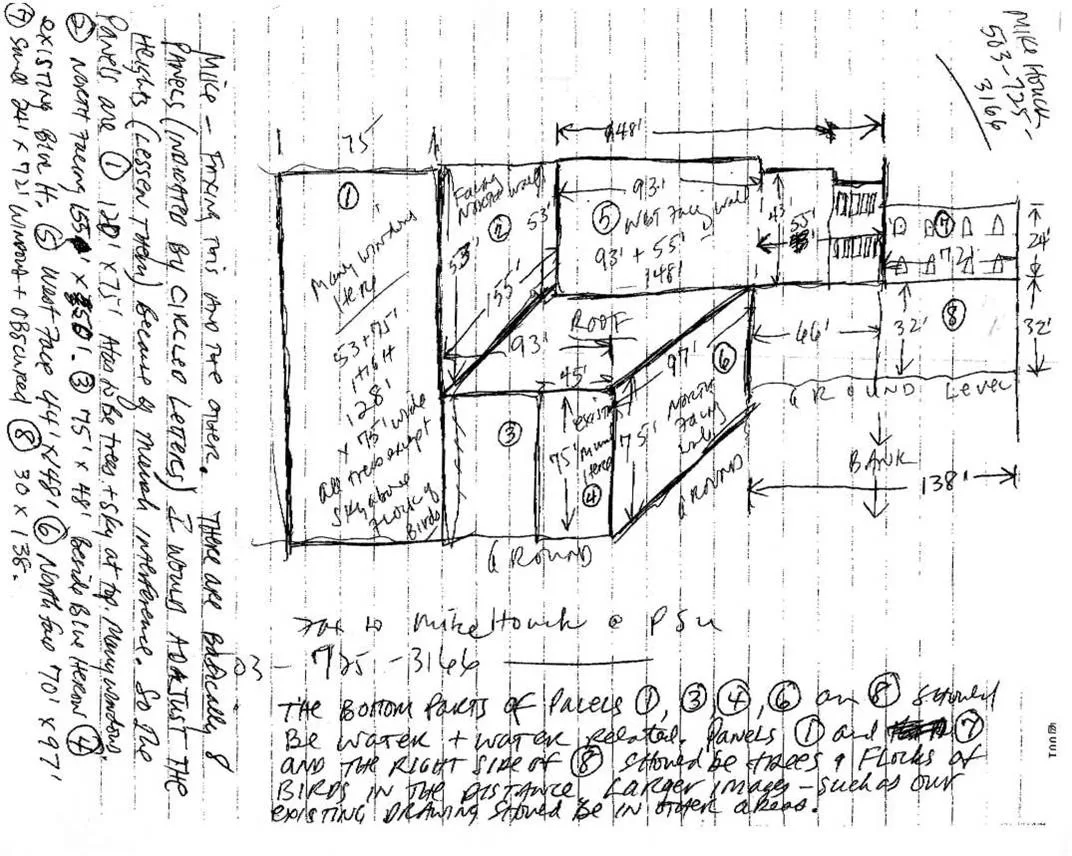 MIKE HOUCK
503-725-
3166
Mike - Faxing this and the other. There are basically 8
Panels (indicated by circled letters) I would ADAJUST THE
Heights (Lessen them) because of mural interference. So the
Panels are ① 120' x 75' Also to be trees + sky at top. Many windows.
② North facing 55' x 50'. ③ 75' x 48' beside Blue Heron ④
existing Blue H. ⑤ West face 44' x 148' ⑥ North face 70' x 97'
⑦ small 24' x 72' window + obscured ⑧ 30 x 138.
75'
148'
①
Many windows
Here
53+75'
128'
x 75' wide
all trees except
sky above
flock of
Birds
Facing
North wall
②
53'
53'
55'
93'
⑤ West Facing wall
93' + 55'
148'
43'
55'
⑦
72'
24'
ROOF
93'
45'
97'
⑥
66'
32'
⑧
32'
③
existing
mural
75' Heron
④
75'
North
Facing
wall
GROUND LEVEL
GROUND
BANK
138'
GROUND
Fax to Mike Houck @ PSU
03-725-3166
THE BOTTOM PARTS OF PANELS ①, ③, ④, ⑥ an ⑧ should
BE WATER + WATER RELATED. PANELS ① and ⑦
AND THE RIGHT SIDE OF ⑧ SHOULD BE TREES & FLOCKS OF
BIRDS IN THE DISTANCE LARGER IMAGES - SUCH AS OUR
EXISTING DRAWING SHOULD BE IN OTHER AREAS.